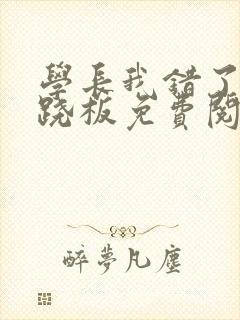 學長我錯了
跷板免費閱
醉夢凡塵